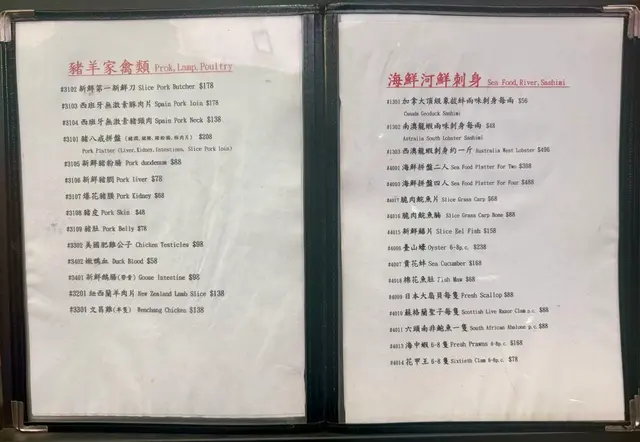 豬羊家禽類 Prok,Lamp,Poultry
#3102 新鮮第一新鮮刀 Slice Pork Butcher $178
#3103 西班牙無激素豚肉片 Spain Pork loin $178
#3104 西班牙無激素豬頸肉 Spain Pork Neck $138
#3101 豬八戒拼盤 $208
Pork Platter (Liver,Kidney,Intentions, Slice Pork loin)
#3105 新鮮豬粉腸 Pork duodenum $88
#3106 新鮮豬膶 Pork liver $78
#3107 爆花豬腰 Pork Kidney $68
#3108 豬皮 Pork Skin $48
#3109 豬肚 Pork Belly $78
#3302 美國肥雞公子 Chicken Testicles $98
#3402 嫩鴨血 Duck Blood $58
#3401 新鮮鵝腸 Goose Intestine $98
#3201 紐西蘭羊肉片 New Zealand Lamb Slice $138
#3301 文昌雞(半隻) Wenchang Chicken $138
海鮮河鮮刺身 Sea Food,River,Sashimi
#1301 加拿大頂級象拔蚌兩味刺身每兩 $56
Canada Geoduck Sashimi
#1302 南澳龍蝦兩味刺身每兩 $48
Astralia South Lobster Sashimi
#1303 西澳龍蝦刺身約一斤 Australia West Lobster $498
#4001 海鮮拼盤二人 Sea Food Platter For Two $308
#4003 海鮮拼盤四人 Sea Food Platter For Four $488
#4017 脆肉鯇魚片 Slice Grass Carp $68
#4016 脆肉鯇魚腩 Slice Grass Carp Bone $88
#4015 新鮮鱔片 Slice Eel Fish $158
#4006 台山蠔 Oyster 6-8p.c. $238
#4007 貴花蚌 Sea Cucumber $168
#4018 棉花魚肚 Fish Maw $68
#4009 日本大扇貝每隻 Fresh Scallop $88
#4010 蘇格蘭聖子每隻 Scottish Live Manor Clam p.c. $88
#4011 六頭南非鮑魚一隻 South African Abalone p.c. $88
#4013 海中蝦 6-8 隻 Fresh Prawns 6-8p.c. $168
#4014 花甲王 6-8 隻 Sixtieth Clam 6-8p.c. $78